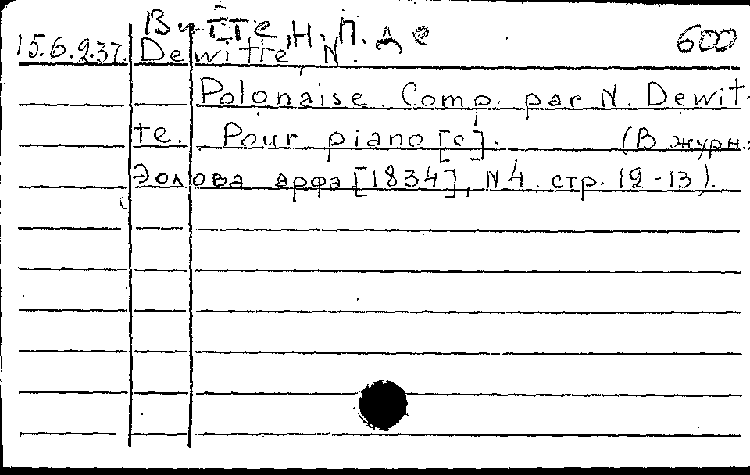 Витте, Н. П. де
600
15.6.937. Dewitte, N.
Polonaise. Comp. par N. Dewit-
te. Pour piano[c]. (В журн.:
Эолова арфа [1834], N4. стр. 12-13).